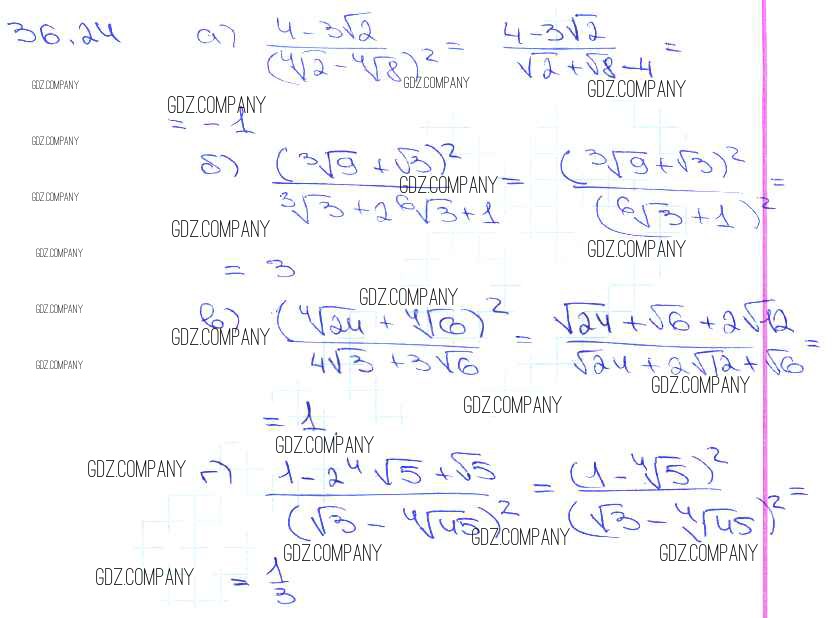 36.24 а) (4-3√2)/(⁴√2-⁴√8)² = (4-3√2)/(√2+√8-4) =
GDZ.COMPANY GDZ.COMPANY GDZ.COMPANY
GDZ.COMPANY
= -1
GDZ.COMPANY
б) (³√9+√3)²/(³√3+2⁶√3+1) = (³√9+√3)²/(⁶√3+1)² =
GDZ.COMPANY GDZ.COMPANY
GDZ.COMPANY GDZ.COMPANY
= 3
GDZ.COMPANY
GDZ.COMPANY
в) (⁴√24+⁴√6)²/(4√3+3√6) = (√24+√6+2√12)/(√24+2√12+√6) =
GDZ.COMPANY GDZ.COMPANY
GDZ.COMPANY GDZ.COMPANY
GDZ.COMPANY
= 1
GDZ.COMPANY
г) (1-2⁴√5+√5)/(√3-⁴√45)² = (1-⁴√5)²/(√3-⁴√45)² =
GDZ.COMPANY
GDZ.COMPANY GDZ.COMPANY GDZ.COMPANY
GDZ.COMPANY
= 1/3